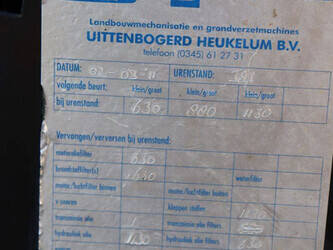 Landbouwmechanisatie en grondverzetmachines
UITTENBOGERD HEUKELUM B.V.
telefoon (0345) 61 27 31
DATUM: 02-03-11 URENSTAND:
volgende beurt: klein/groot klein/groot klein/groot
bij urenstand: 630 880 1130
Vervangen/verversen bij urenstand:
motoroliefilter 630
brandstoffilter(s) 1130 waterfilter
motor/luchtfilter binnen motor/luchtfilter buiten
v-snaren kleppen stellen
transmissie olie transmissie filter
hydrauliek olie 1130 hydrauliek filter 630